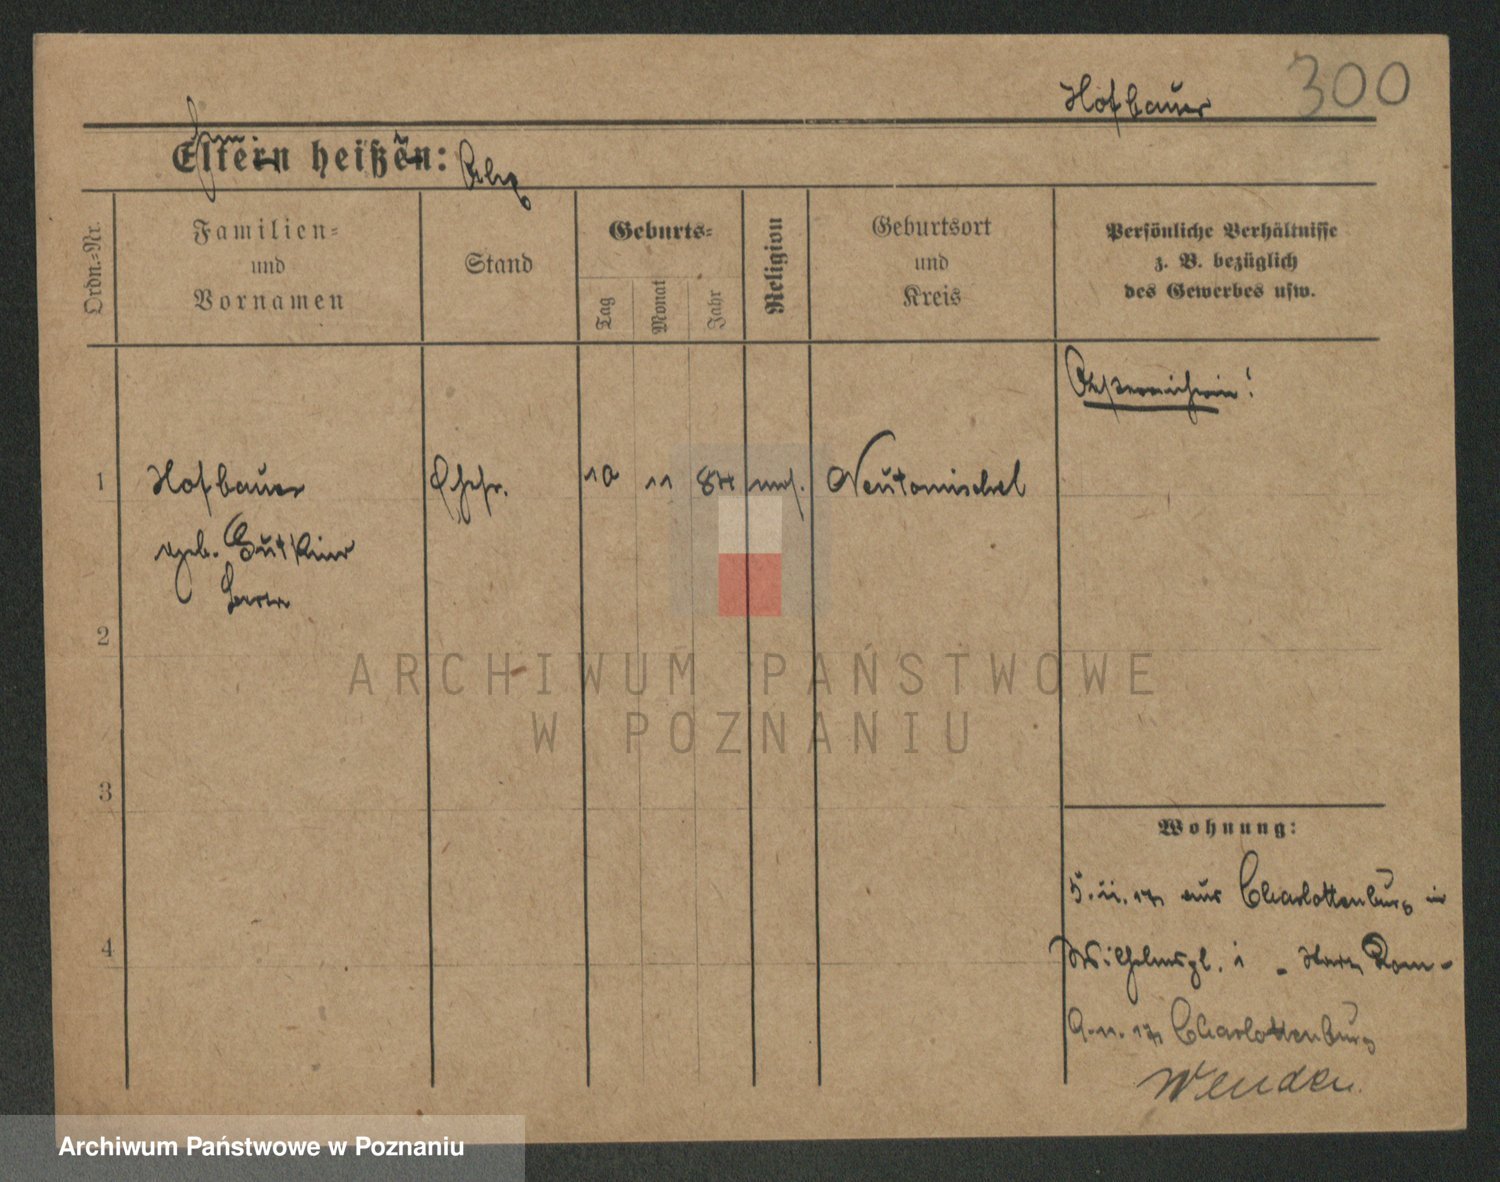 300
Hofbauer
Eltern heißen:
Ordn.-Nr.
Familien-
und
Vornamen
Stand
Geburts-
Tag
Monat
Jahr
Religion
Geburtsort
und
Kreis
Persönliche Verhältnisse
z. B. bezüglich
des Gewerbes usw.
Österreicherin!
1 Hofbauer Ehefr. 10 11 84 mos. Neutomischel
geb.
2
3
4
Wohnung:
5. 11. 17 aus Charlottenburg in
Wilhelmspl. 1 - Hotel Rom -
9. 11. 17 Charlottenburg
Wenden
ARCHIWUM PAŃSTWOWE
W POZNANIU
Archiwum Państwowe w Poznaniu